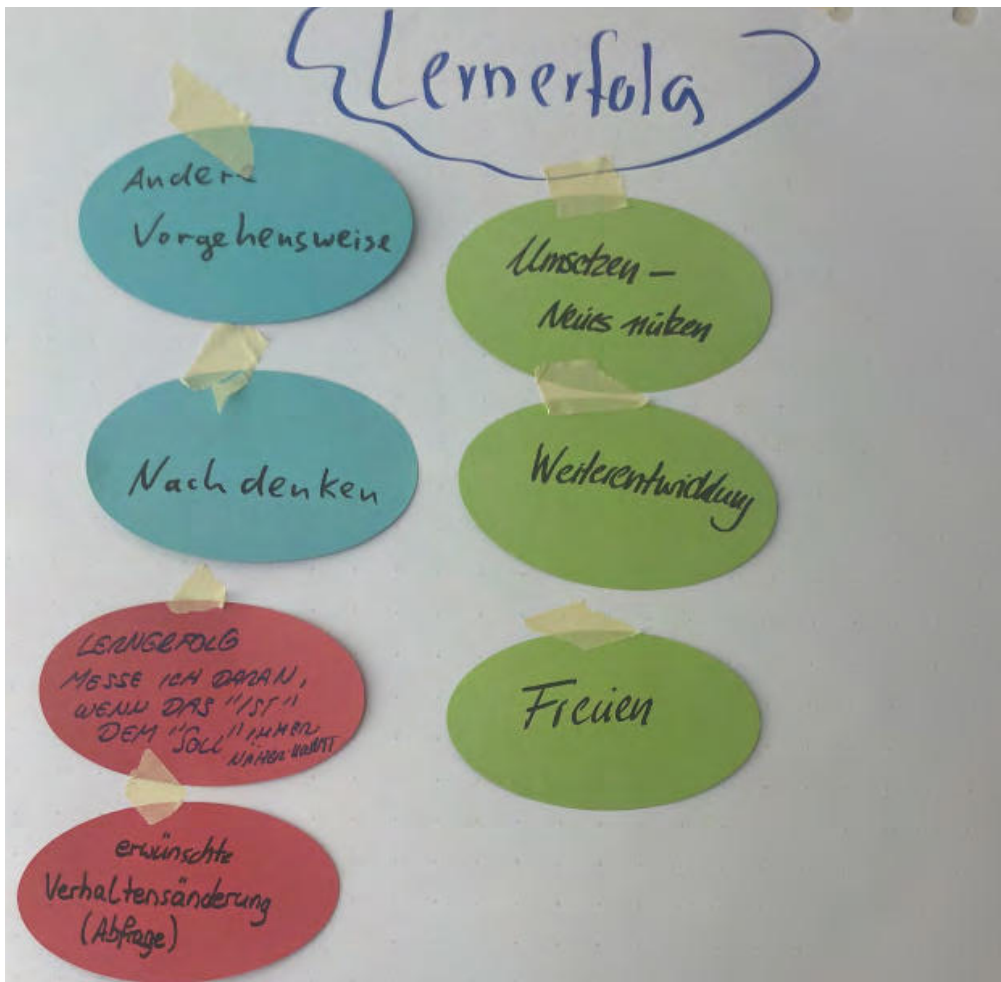 Lernerfolg
Andere
Vorgehensweise
Nachdenken
LERNERFOLG
MESSE ICH DARAN,
WENN DAS "IST"
DEM "SOLL" IMMER
NÄHER KOMMT
erwünschte
Verhaltensänderung
(Abfrage)
Umsetzen –
Neues nützen
Weiterentwicklung
Freuen